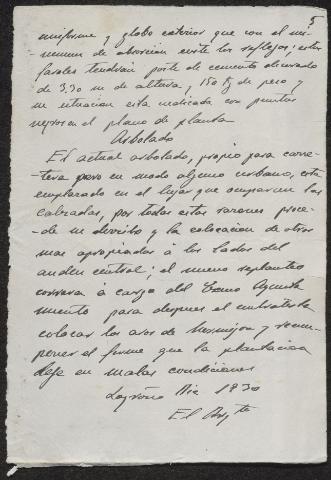 5
uniforme y globo exterior que con el mi-
nimum de absorción evite los reflejos; estos
faroles tendrán poste de cemento decorado
de 3,30 m de altura, 150 Kg de peso y
su situacion esta indicada con puntos
negros en el plano de planta
Arbolado
El actual arbolado, propio para carre-
tera pero en modo alguno urbano, está
emplazado en el lugar que ocuparan las
calzadas, por todas estas razones proce-
de su derribo y la colocacion de otros
mas apropiados á los lados del
anden central; el nuevo replanteo
correra á cargo del Exmo Ayunta
miento para despues el contratista
colocar los aros de hormigon y recom-
poner el firme que la plantacion
deje en malas condiciones
Logroño Dic 1930
El Arqto